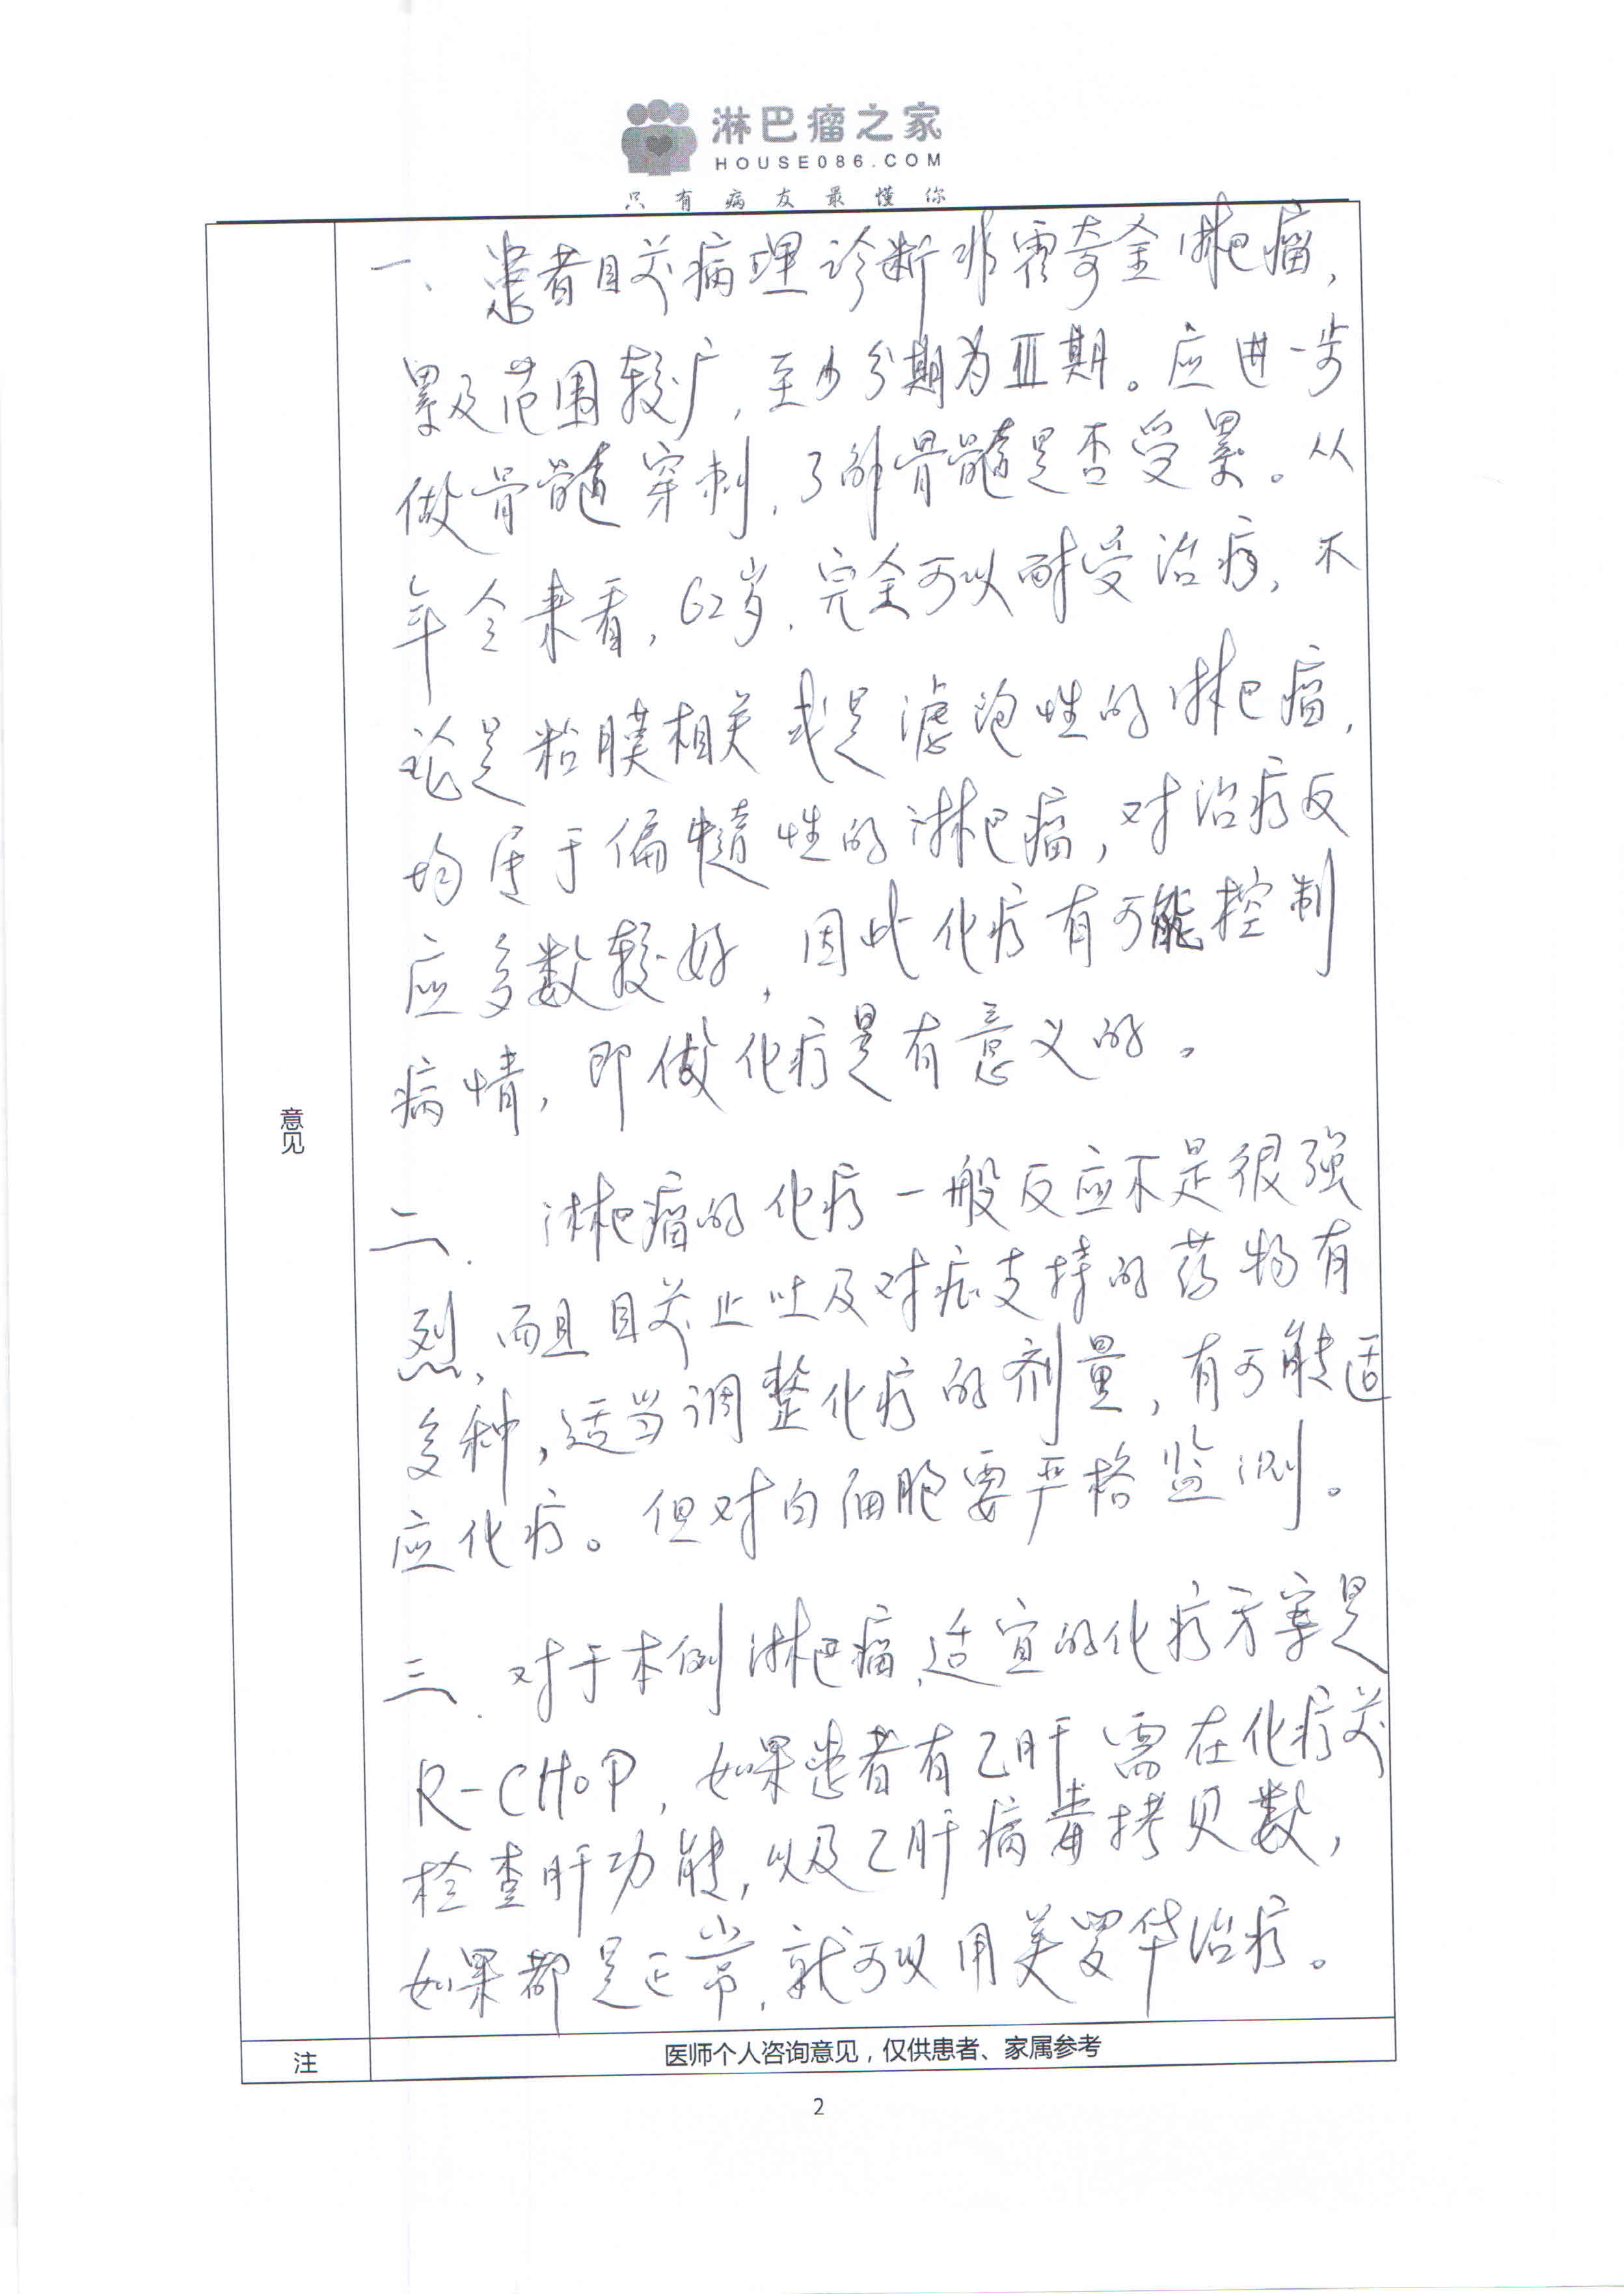 淋巴瘤之家
HOUSE086.COM
只有病友最懂你
一、患者目前病理诊断非霍奇金淋巴瘤,
累及范围较广,至少分期为Ⅲ期。应进一步
做骨髓穿刺,了解骨髓是否受累。从
年令来看,62岁,完全可以耐受治疗,不
论是粘膜相关或是滤泡性的淋巴瘤,
均属于偏惰性的淋巴瘤,对治疗反
应多数较好,因此化疗有可能控制
病情,即做化疗是有意义的。
二.淋巴瘤的化疗一般反应不是很强
烈,而且目前止吐及对症支持的药物有
多种,适当调整化疗的剂量,有可能适
应化疗。但对白细胞要严格监测。
三.对于本例淋巴瘤,适宜的化疗方案是
R-CHOP,如果患者有乙肝需在化疗前
检查肝功能,以及乙肝病毒拷贝数,
如果都是正常,就可以用美罗华治疗。
意见
注 医师个人咨询意见,仅供患者、家属参考
2